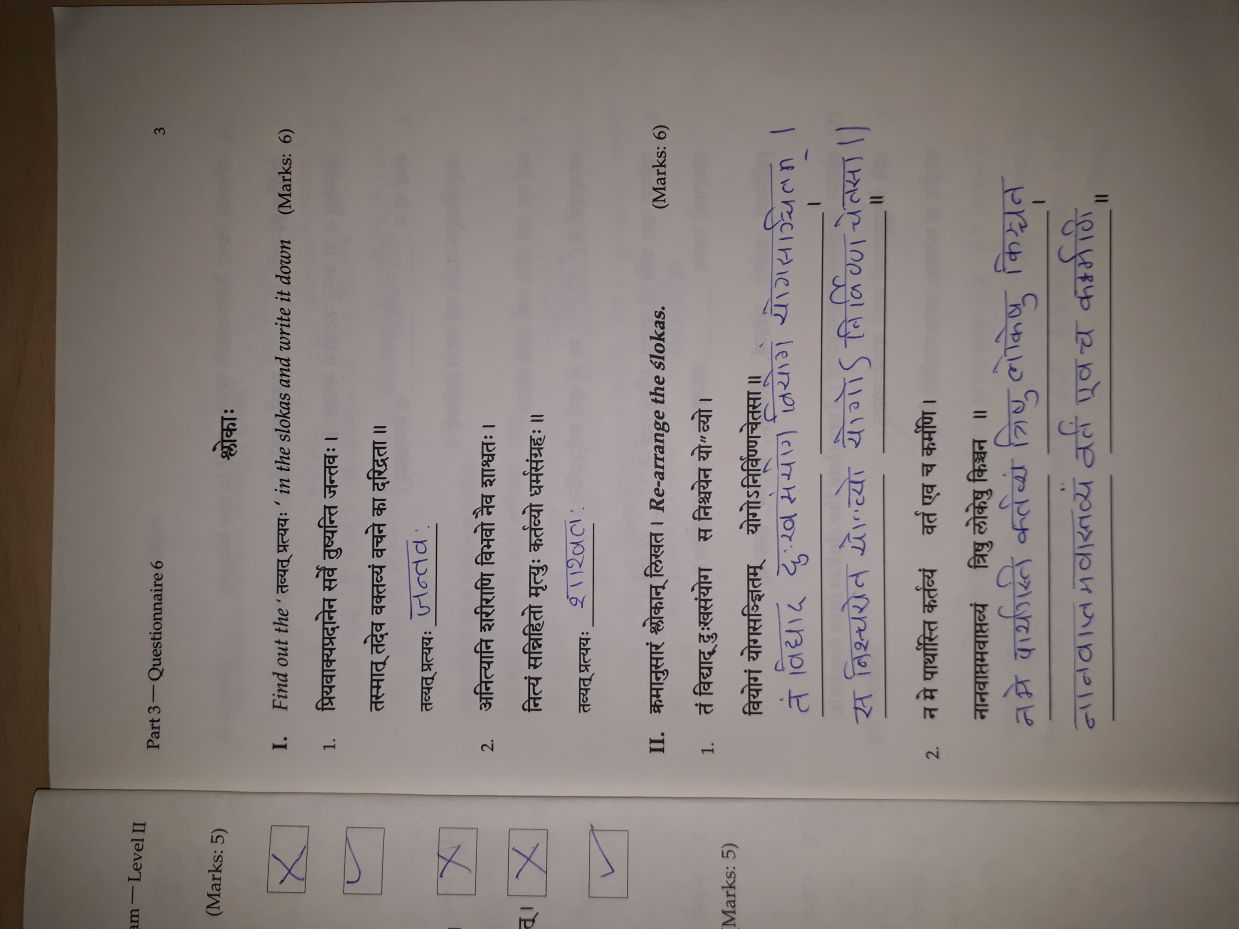 am — Level II
(Marks: 5)
त्।
(Marks: 5)
Part 3 — Questionnaire 6 3
श्लोकाः
I. Find out the ‘ तव्यत् प्रत्ययः ‘ in the slokas and write it down (Marks: 6)
1. प्रियवाक्यप्रदानेन सर्वे तुष्यन्ति जन्तवः।
तस्मात् तदेव वक्तव्यं वचने का दरिद्रता॥
तव्यत् प्रत्ययः जन्तवः
2. अनित्यानि शरीराणि विभवो नैव शाश्वतः।
नित्यं सन्निहितो मृत्युः कर्तव्यो धर्मसंग्रहः॥
तव्यत् प्रत्ययः शाश्वतः
II. क्रमानुसारं श्लोकान् लिखत। Re-arrange the ślokas. (Marks: 6)
1. तं विद्याद् दुःखसंयोग स निश्चयेन यो”व्यो।
वियोगं योगसञ्ज्ञितम् योगोऽनिर्विण्णचेतसा॥
तं विद्याद दुःखसंयोग वियोगं योगसाञ्चितम् ।
।
स निश्चयेन यो"व्यो योगोऽ निर्विण्ण चेतसा॥
॥
2. न मे पार्थास्ति कर्तव्यं वर्त एव च कर्मणि।
नानवाप्तमवाप्तव्यं त्रिषु लोकेषु किञ्चन ॥
न मे पार्थास्ति कर्तव्यं त्रिषु लोकेषु किञ्चन
।
नानवाप्तमवाप्तव्यं वर्त एव च कर्मणि
॥